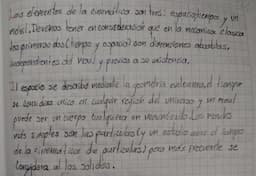 Los elementos de la cinemática son tres: espacio, tiempo y un
móvil. Devemos tener en consideración que en la mecánica clasica
los primeros dos (tiempo y espacio) son dimensiones absolutas,
independientes del movil y previos a su existencia.
El espacio se describe mediante la geometría euclideana, el tiempo
se considera unico en cualquier región del universo y un movil
puede ser un cuerpo cualquiera en movimiento. Los moviles
más simples son las partículas (y un estudio abre el campo
de la cinemática de particulas) pero más frecuente se
considera al los solidos.